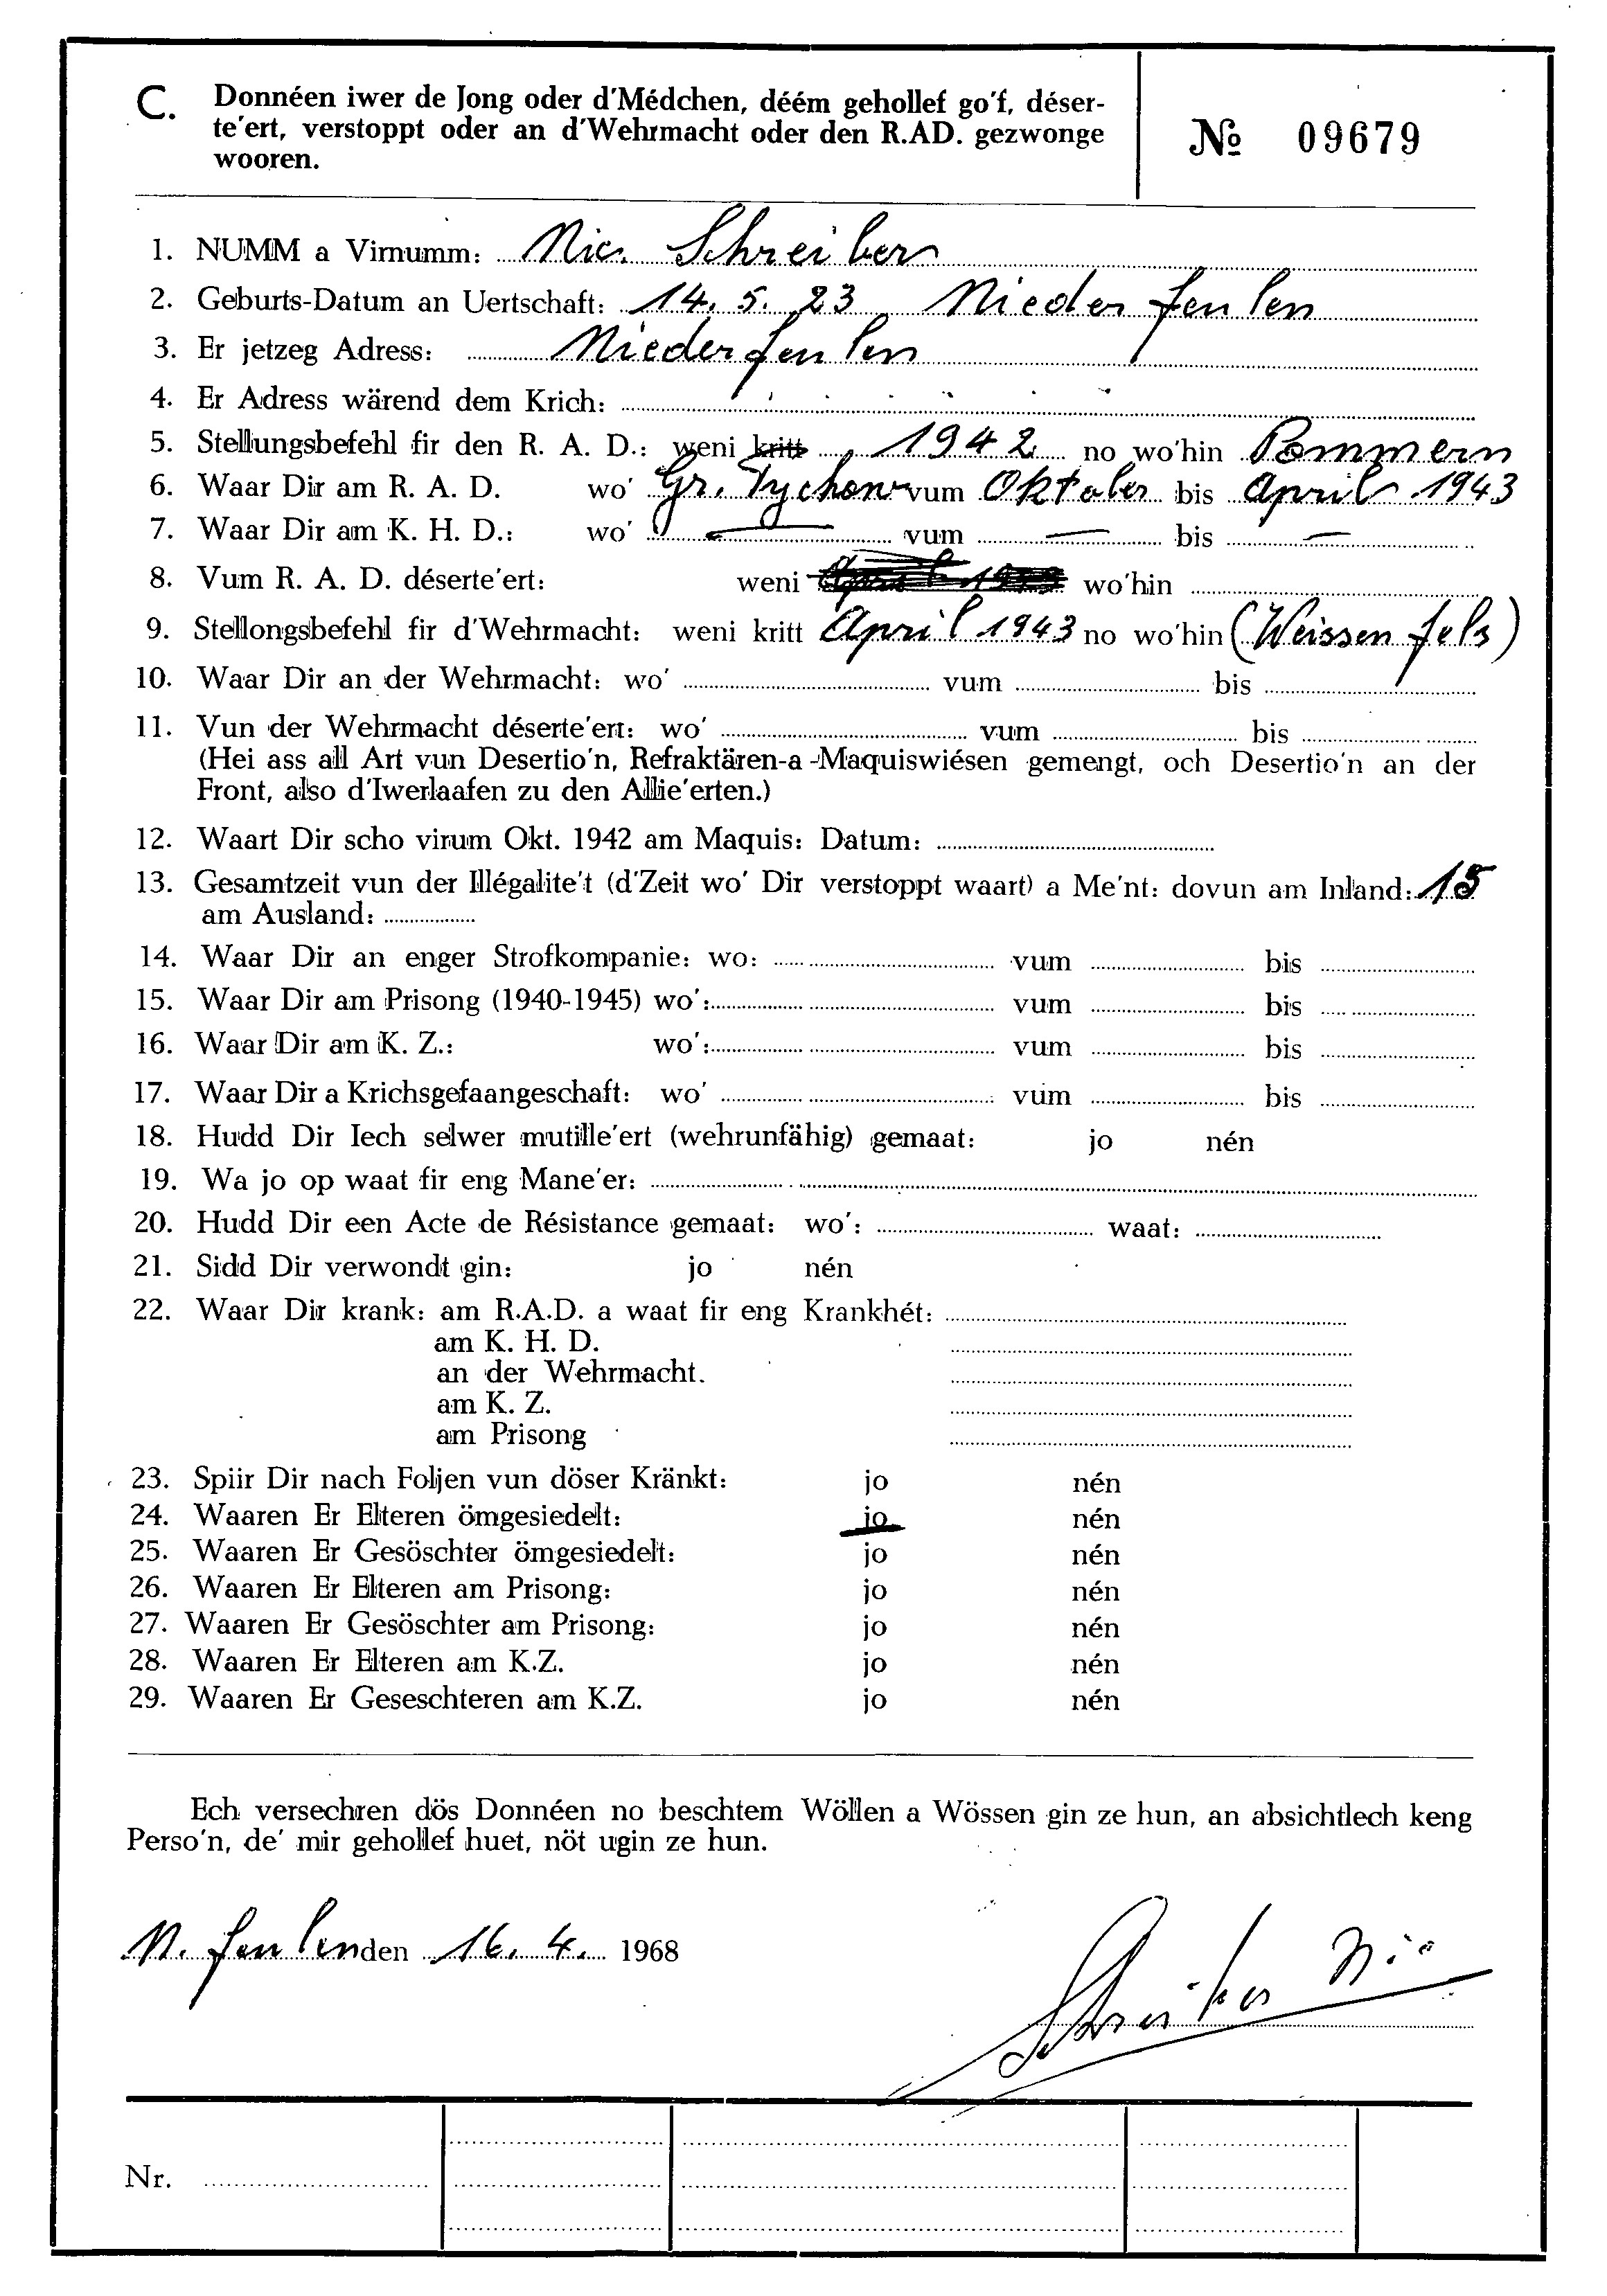 C. Donnéen iwer de Jong oder d'Médchen, déém gehollef go'f, déser-
te'ert, verstoppt oder an d'Wehrmacht oder den R.AD. gezwonge
wooren.
No 09679
1. NUMM a Virnumm: Nic. Schreiber
2. Geburts-Datum an Uertschaft: 14. 5. 23 Niederfeulen
3. Er jetzeg Adress: Niederfeulen
4. Er Adress wärend dem Krich:
5. Stellungsbefehl fir den R. A. D.: weni kritt 1942 no wo'hin Pommern
6. Waar Dir am R. A. D. wo' Gr. Tychow vum Oktober bis April 1943
7. Waar Dir am K. H. D.: wo' — vum — bis —
8. Vum R. A. D. déserte'ert: weni April 1943 wo'hin
9. Stellongsbefehl fir d'Wehrmacht: weni kritt April 1943 no wo'hin (Weissenfels)
10. Waar Dir an der Wehrmacht: wo' vum bis
11. Vun der Wehrmacht déserte'ert: wo' vum bis
(Hei ass all Art vun Desertio'n, Refraktären-a-Maquiswiésen gemengt, och Desertio'n an der
Front, also d'Iwerlaafen zu den Allie'erten.)
12. Waart Dir scho virum Okt. 1942 am Maquis: Datum:
13. Gesamtzeit vun der Illégalite't (d'Zeit wo' Dir verstoppt waart) a Me'nt: dovun am Inland: 15
am Ausland:
14. Waar Dir an enger Strofkompanie: wo: vum bis
15. Waar Dir am Prisong (1940-1945) wo': vum bis
16. Waar Dir am K. Z.: wo': vum bis
17. Waar Dir a Krichsgefaangeschaft: wo' vum bis
18. Hudd Dir Iech selwer mutille'ert (wehrunfähig) gemaat: jo nén
19. Wa jo op waat fir eng Mane'er:
20. Hudd Dir een Acte de Résistance gemaat: wo': waat:
21. Sidd Dir verwondt gin: jo nén
22. Waar Dir krank: am R.A.D. a waat fir eng Krankhét:
am K. H. D.
an der Wehrmacht.
am K. Z.
am Prisong
23. Spiir Dir nach Foljen vun döser Kränkt: jo nén
24. Waaren Er Elteren ömgesiedelt: jo nén
25. Waaren Er Gesöschter ömgesiedelt: jo nén
26. Waaren Er Elteren am Prisong: jo nén
27. Waaren Er Gesöschter am Prisong: jo nén
28. Waaren Er Elteren am K.Z. jo nén
29. Waaren Er Geseschteren am K.Z. jo nén
Ech versechren dös Donnéen no beschtem Wöllen a Wössen gin ze hun, an absichtlech keng
Perso'n, de' mir gehollef huet, nöt ugin ze hun.
N. Feulen den 16. 4. 1968
Schreiber Nic
Nr.